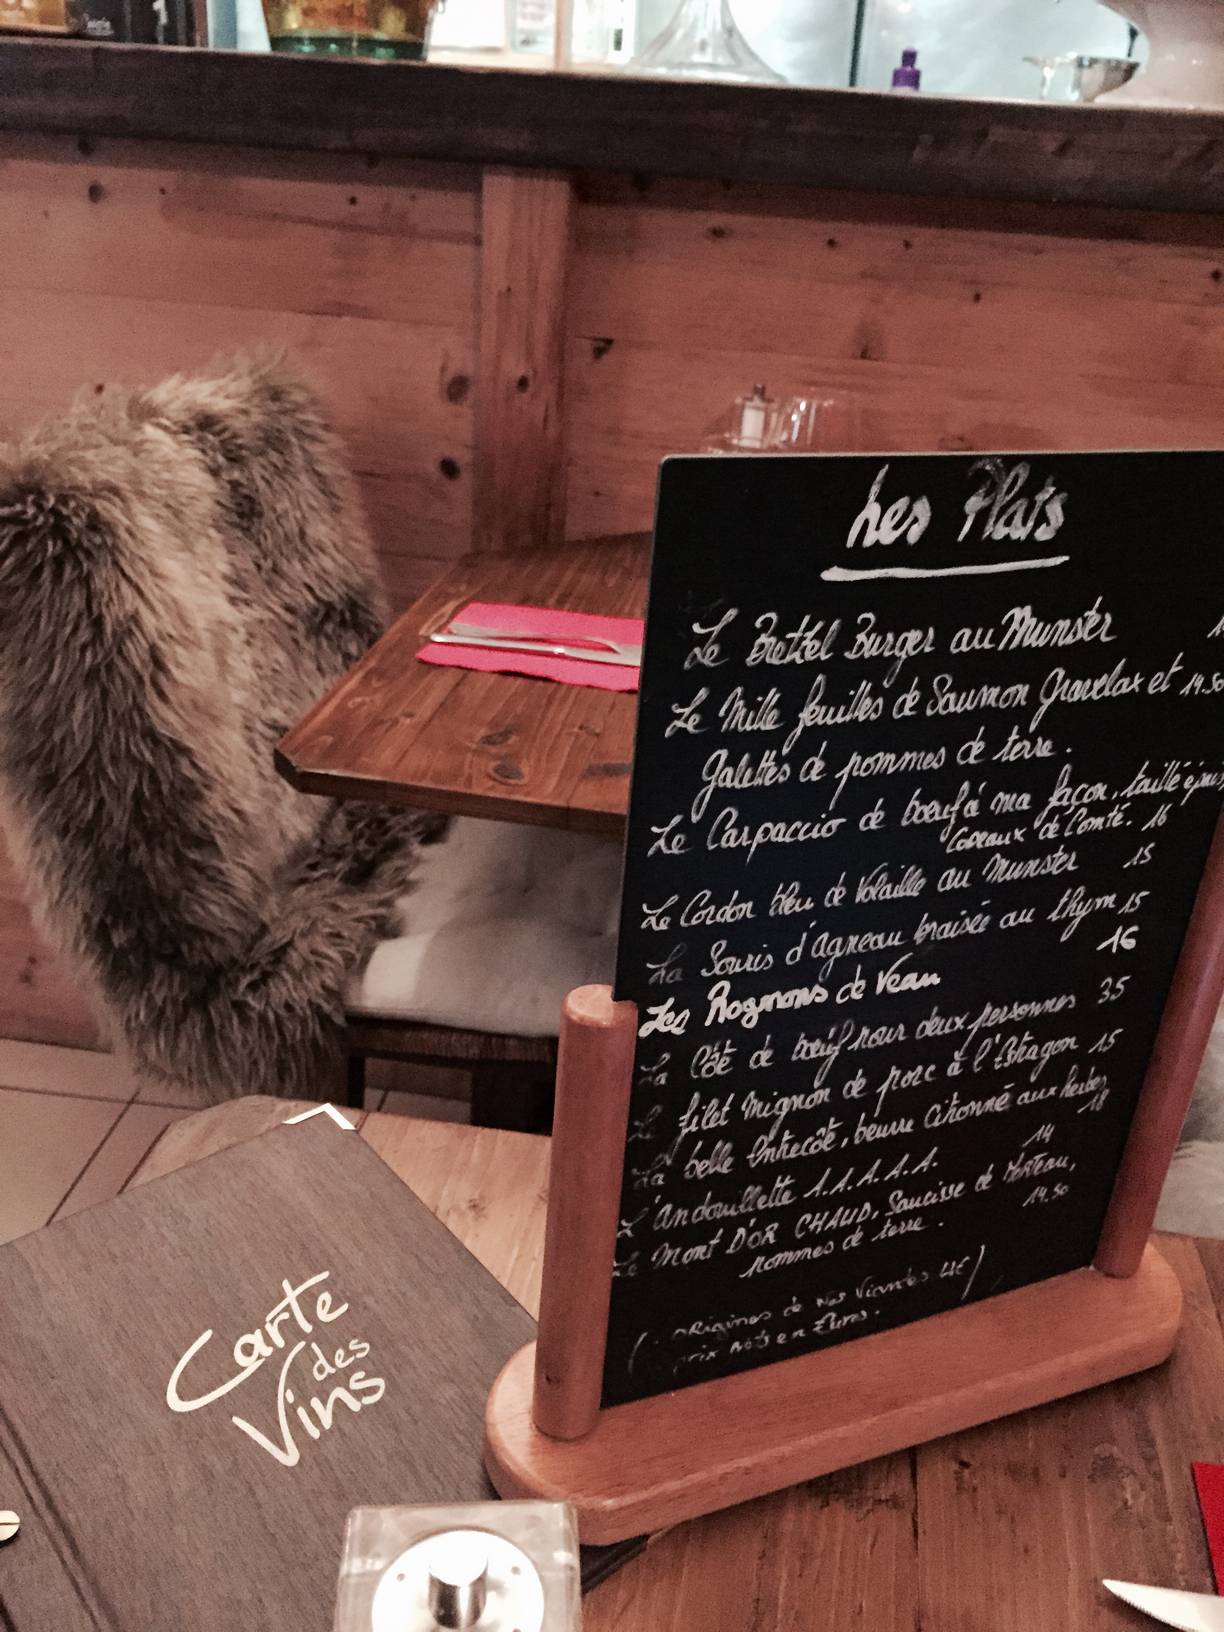 Les Plats
Le Bretzel Burger au Munster
Le Mille feuilles de Saumon Gravelax et 14.50
Galettes de pommes de terre.
Le Carpaccio de boeuf à ma façon, taillé épais,
Copeaux de Comté. 16
Le Cordon bleu de Volaille au Munster 15
La Souris d'Agneau braisée au thym 15
Les Rognons de Veau 16
La Côte de boeuf pour deux personnes 35
Le filet Mignon de porc à l'Estragon 15
La belle Entrecôte, beurre citronné aux herbes
18
L'Andouillette A.A.A.A.A. 14
Le Mont D'OR CHAUD, Saucisse de Morteau,
pommes de terre. 14.50
(origines de Nos Viandes UE)
prix Nets en Euros.
Carte
des
Vins